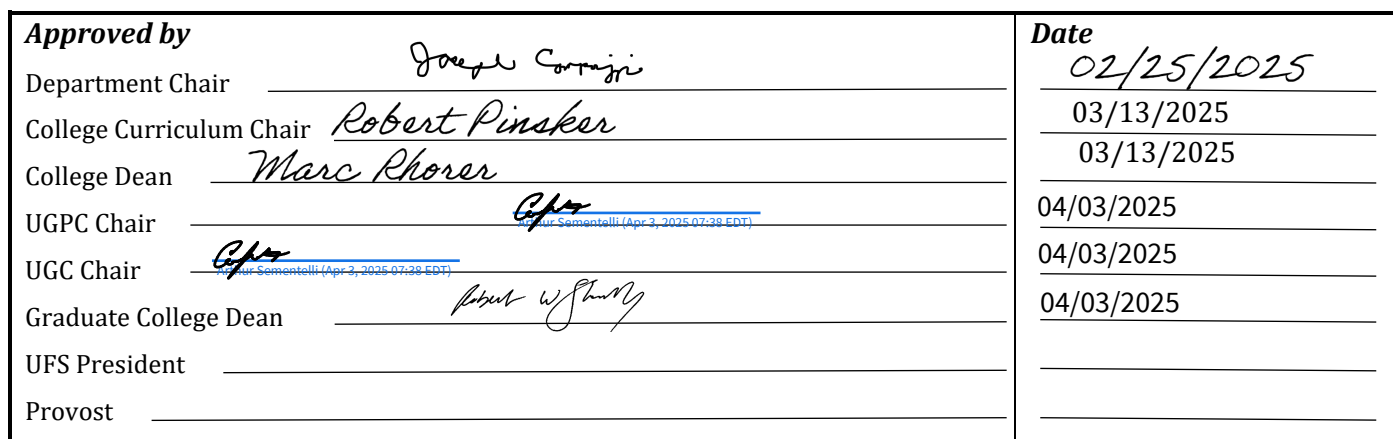 Approved by Date
Department Chair Joseph 02/25/2025
College Curriculum Chair Robert Pinsker 03/13/2025
College Dean Marc Rhorer 03/13/2025
UGPC Chair 04/03/2025
Arthur Sementelli (Apr 3, 2025 07:38 EDT)
UGC Chair 04/03/2025
Arthur Sementelli (Apr 3, 2025 07:38 EDT)
Graduate College Dean Robert W 04/03/2025
UFS President
Provost